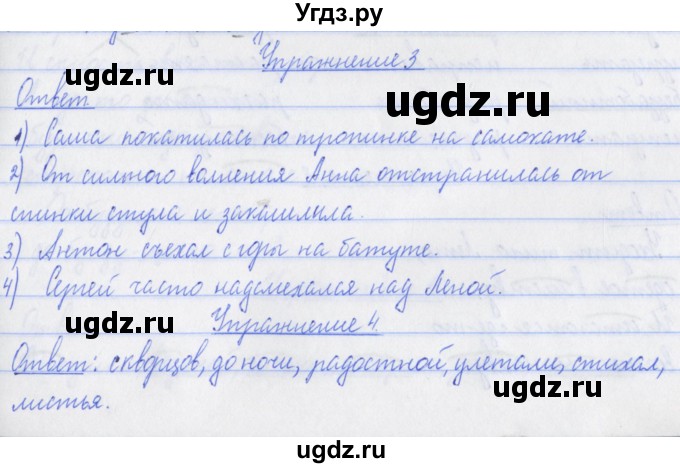 Угдз.ру
Упражнение 3
ugdz.ru
ugdz.ru
Ответ
1) Саша покатилась по тропинке на самокате.
2) От сильного волнения Анна отстранилась от
ugdz.ru
ugdz.ru
спинки стула и закашляла.
3) Антон съехал с горы на батуте.
4) Сергей часто надсмехался над Леной.
ugdz.ru
ugdz.ru
Упражнение 4
Ответ: скворцов, до ночи, радостной, улетали, стихал,
листья.
ugdz.ru
ugdz.ru